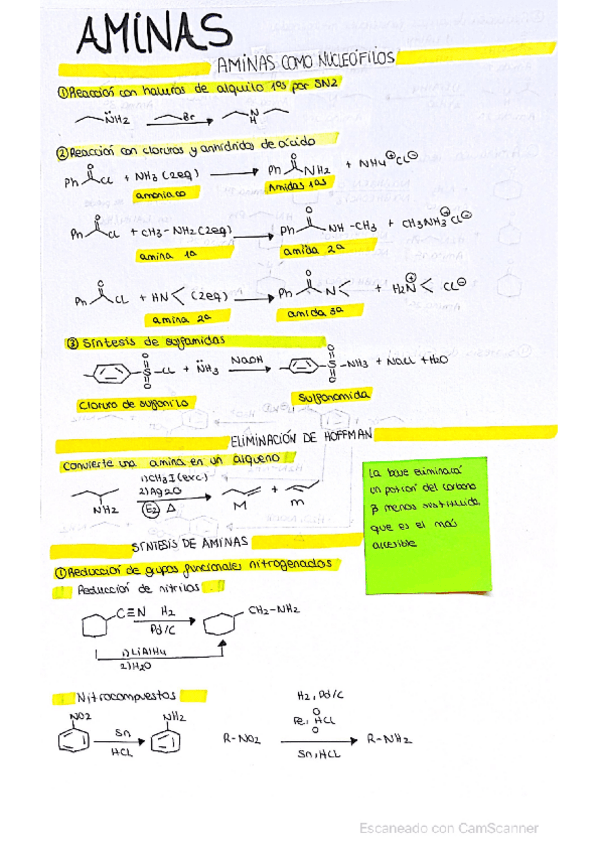 AMINAS
AMINAS COMO NUCLEÓFILOS
①Reacción con haluros de alquilo 1ºs por SN2
NH2 Br N H
②Reacción con cloruros y anhídridos de ácido
Ph O Cl + NH3 (2eq) Ph O NH2 + NH4⊕Cl⊖
amoniaco Amidas 1as
Ph O Cl + CH3-NH2 (2eq) Ph O NH-CH3 + CH3NH3⊕Cl⊖
amina 1a amida 2a
Ph O Cl + HN (2eq) Ph O N + H2N⊕ Cl⊖
amina 2a amida 3a
③ Síntesis de sulfamidas
O S O Cl + NH3 NaOH O S O -NH3 + NaCl + H2O
Cloruro de sulfonilo Sulfonamida
ELIMINACIÓN DE HOFFMAN
Convierte una amina en un alqueno
NH2 1)CH3I(exc) 2)Ag2O E2 Δ M + m
La base eliminará
un protón del carbono
β menos sustituido
que es el más
accesible
SÍNTESIS DE AMINAS
①Reducción de grupos funcionales nitrogenados
Reducción de nitrilos
C≡N H2 Pd/C CH2-NH2
1)LiAlH4
2)H2O
Nitrocompuestos
NO2 Sn HCL NH2
R-NO2 H2, Pd/C o Fe, HCL o Sn, HCL R-NH2
Escaneado con CamScanner